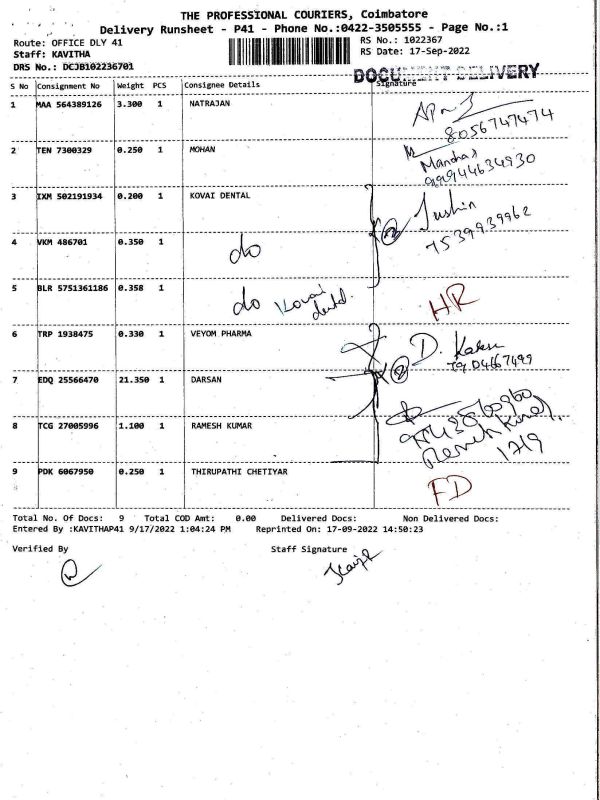 THE PROFESSIONAL COURIERS, Coimbatore
Delivery Runsheet - P41 - Phone No.:0422-3505555 - Page No.:1
Route: OFFICE DLY 41
RS No.: 1022367
Staff: KAVITHA
RS Date: 17-Sep-2022
DRS No.: DCJB102236701
DOCUMENT DELIVERY
S No Consignment No Weight PCS Consignee Details Signature
1 MAA 564389126 3.300 1 NATRAJAN
8056747474
2 TEN 7300329 0.250 1 MOHAN
99944634930
3 IXM 502191934 0.200 1 KOVAI DENTAL
Jushin
7539939962
4 VKM 486701 0.350 1 do
5 BLR 5751361186 0.358 1 do Kovai dental. HR
6 TRP 1938475 0.330 1 VEYOM PHARMA
D.
7904667499
7 EDQ 25566470 21.350 1 DARSAN
8 TCG 27005996 1.100 1 RAMESH KUMAR
Ramesh Kumar.
17/9
9 PDK 6067950 0.250 1 THIRUPATHI CHETIYAR FD
Total No. Of Docs: 9 Total COD Amt: 0.00 Delivered Docs: Non Delivered Docs:
Entered By :KAVITHAP41 9/17/2022 1:04:24 PM Reprinted On: 17-09-2022 14:50:23
Verified By Staff Signature